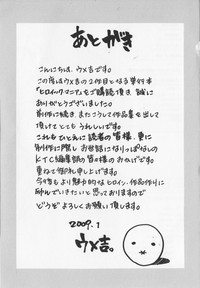 あとがき
こんにちは、ウメ吉です。
この度はウメ吉の2作目となる単行本
「ヒロイックマニア」をご購読頂き 誠に
ありがとうございました。
前作に続き、またこうして作品集を出して
頂けてとてもうれしいです。
これもひとえに読者の皆様、更に
制作に際し お世話になりっぱなしの
KTC編集部の皆々様のおかげです。
重ねて御礼申し上げます。
今後もより魅力的なヒロイン、作品作りに
励んでいきたいと思っておりますので
どうぞよろしくお願い致します。
2009.1
ウメ吉。